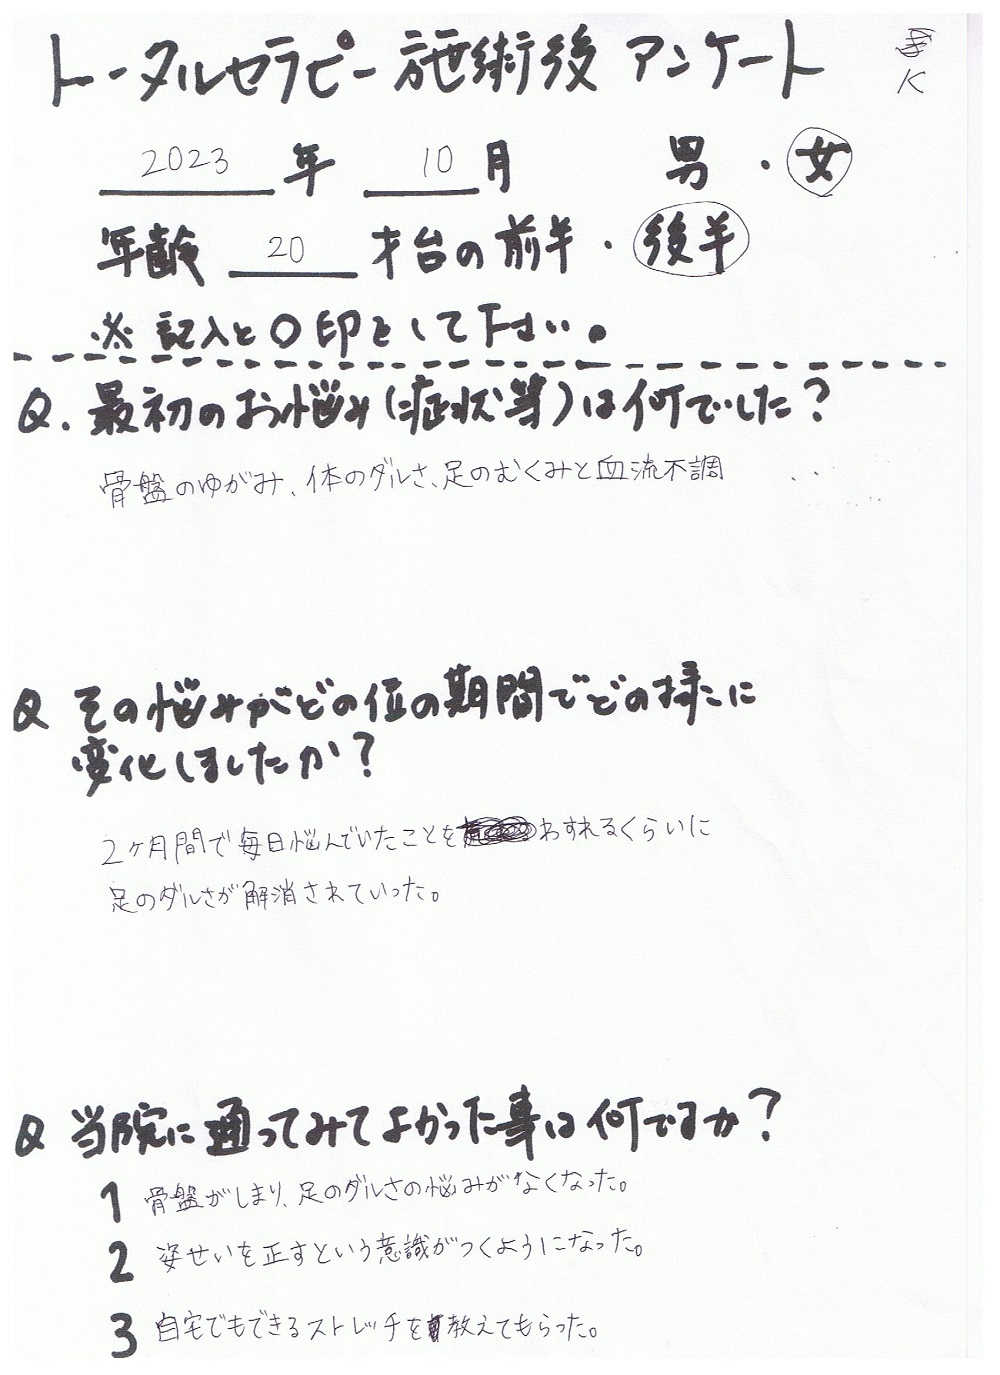 トータルセラピー施術後 アンケート
K
2023 年 10 月 男 ・ 女
年齢 20 才台の前半 ・ 後半
※ 記入と〇印をして下さい。
Q. 最初のお悩み(症状等)は何でした?
骨盤のゆがみ、体のダルさ、足のむくみと血流不調
Q その悩みがどの位の期間でどの様に
変化しましたか?
2ヶ月間で毎日悩んでいたことをわすれるくらいに
足のダルさが解消されていった。
Q 当院に通ってみてよかった事は何ですか?
1 骨盤がしまり、足のダルさの悩みがなくなった。
2 姿せいを正すという意識がつくようになった。
3 自宅でもできるストレッチを教えてもらった。